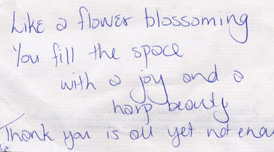 Like a flower blossoming
You fill the space
with a joy and a
harp beauty
Thank you is all yet not enou